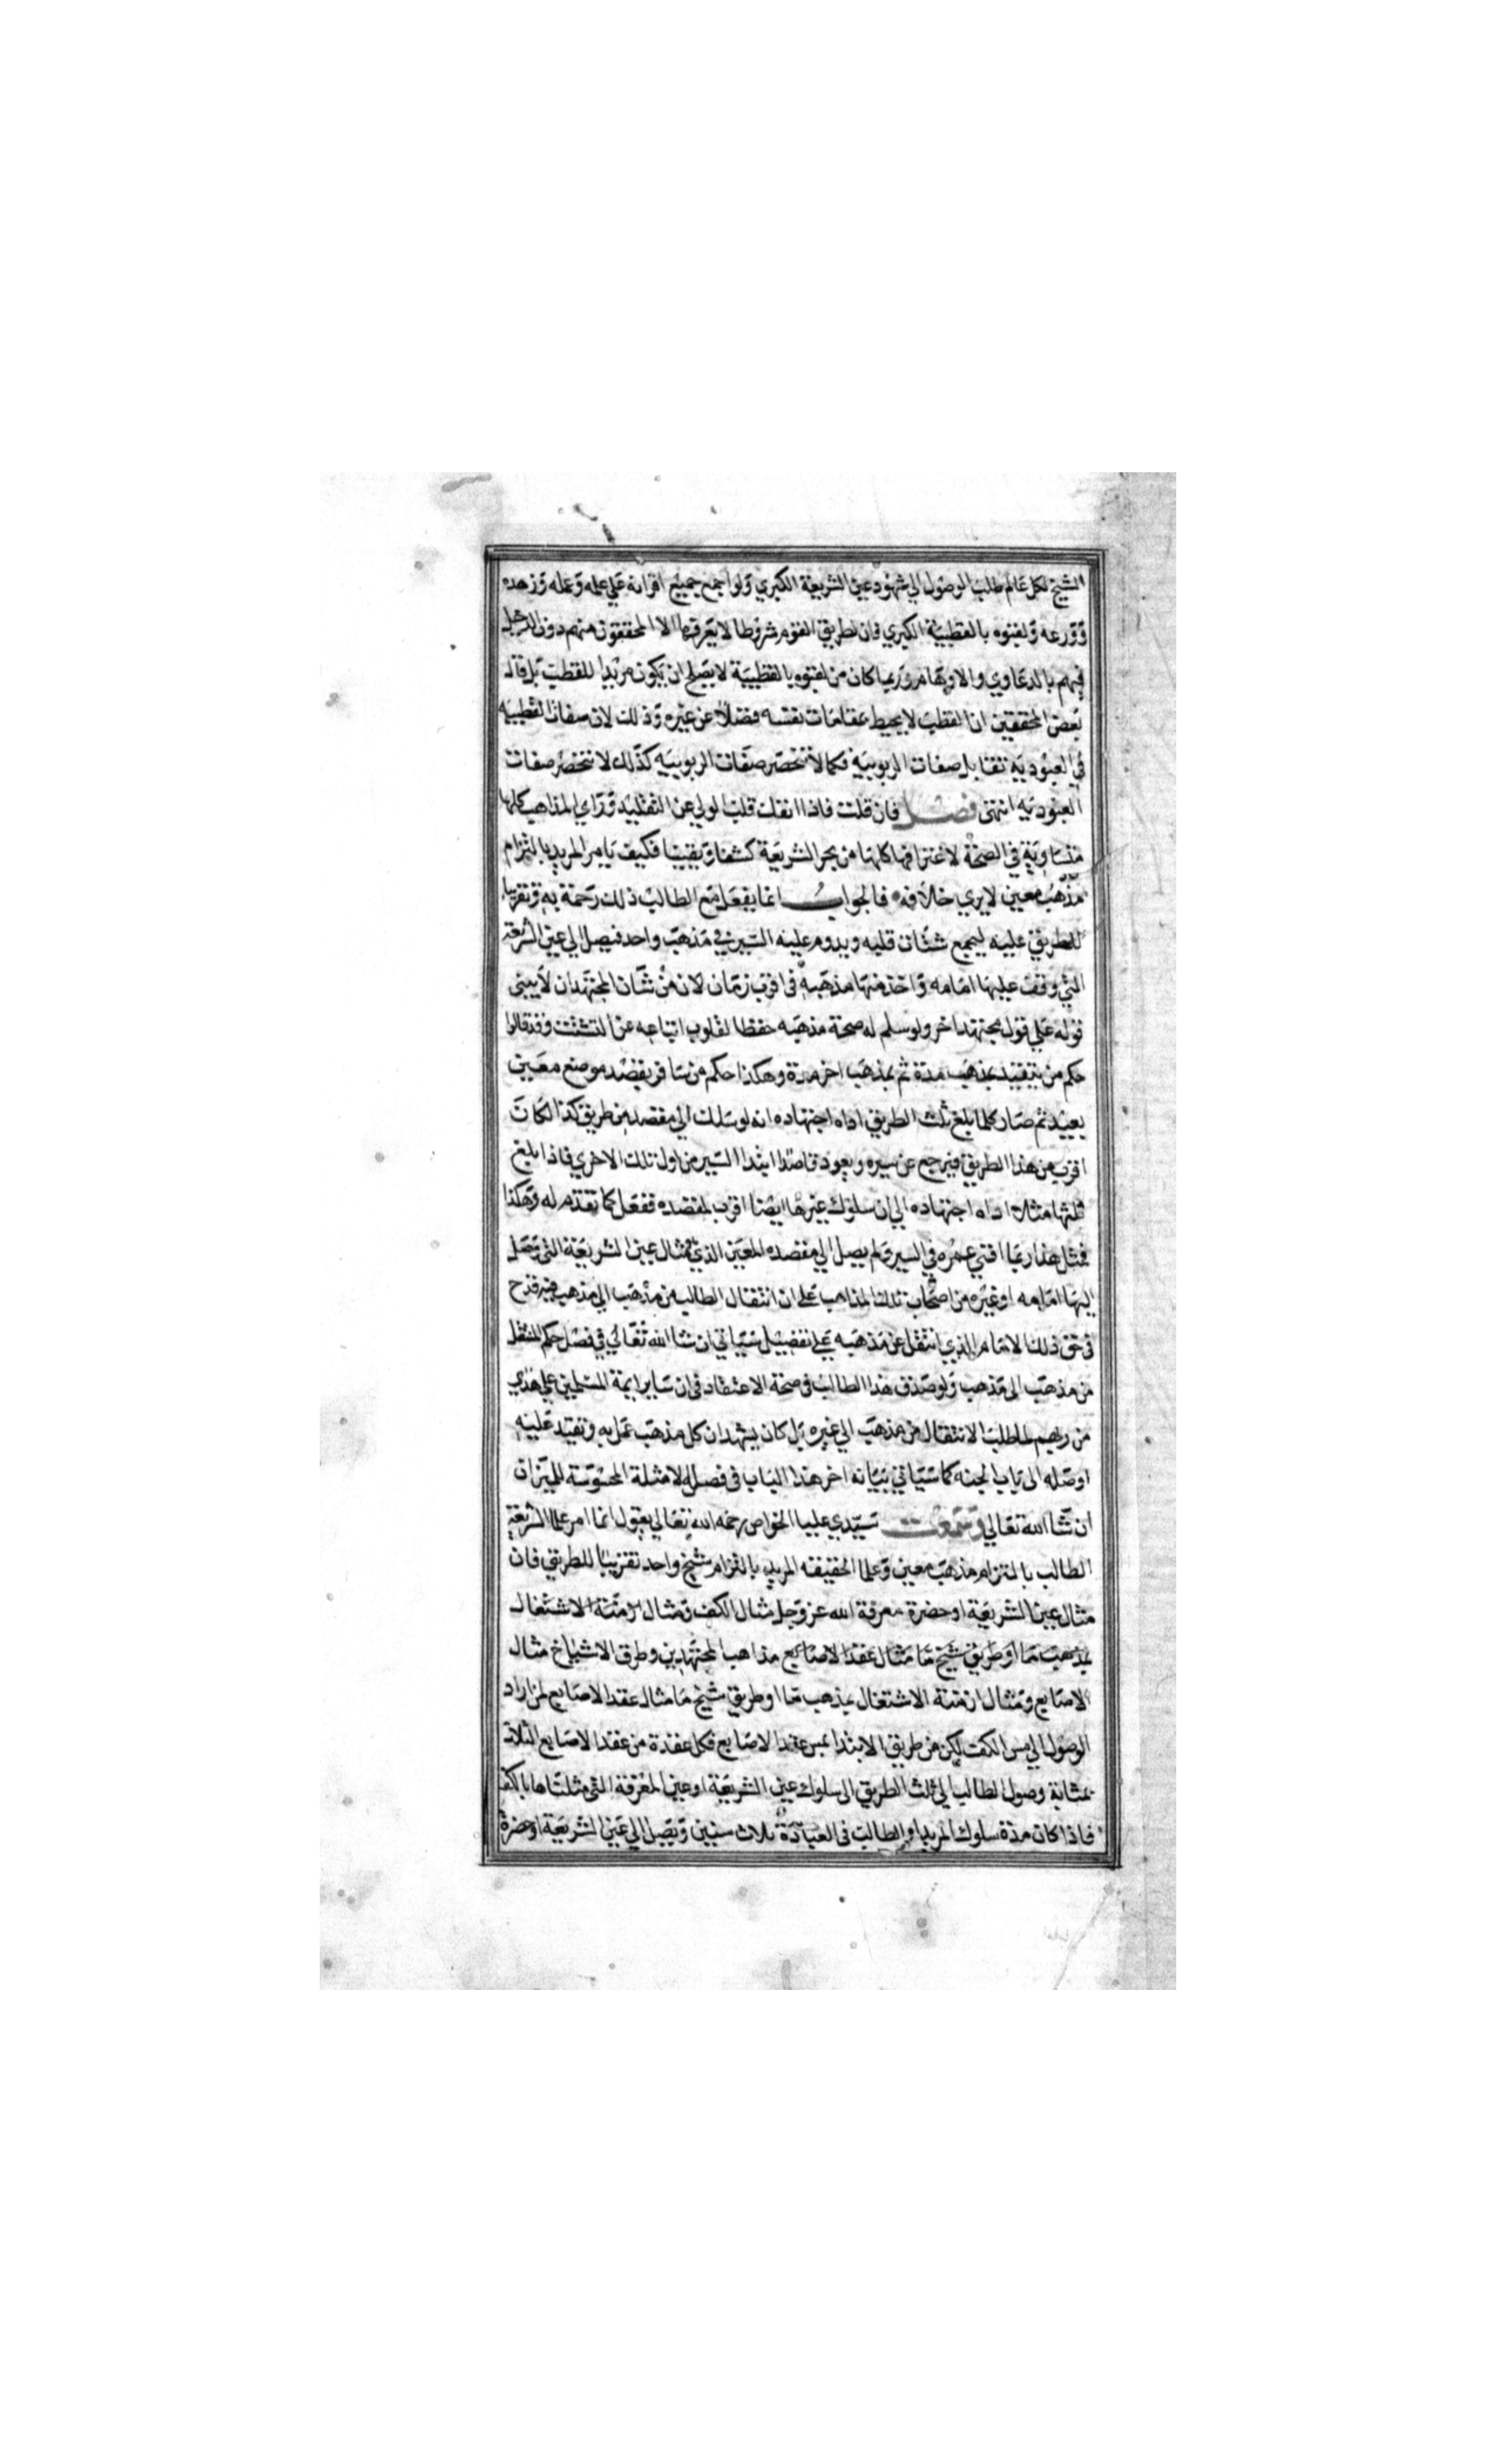 الشيخ لكل عالم طلب الوصول الي شهود عين الشريعة الكبري ولو اجمع جميع اقرانه علي علمه وعمله وزهده
وورعه ولقبوه بالقطبية الكبري فان لطريق القوم شروطا لا يعرفها الا المحققون منهم دون الدخيل
فيهم بالدعاوي والاوهام وربما كان من لقبوه بالقطبية لا يصلح ان يكون مريدا للقطب بل قال
بعض المحققين ان القطب لا يحيط بمقامات نفسه فضلا عن غيره وذلك لان صفات القطبيه
في العبوديه تقابل صفات الربوبيه فكما لا تنحصر صفات الربوبيه كذلك لا تنحصر صفات
العبوديه انتهى فصل فان قلت فاذا انفك قلب الولي عن التقليد وراي المذاهب كلها
متساوية في الصحة لاغترافها كلها من بحر الشريعة كشفا ويقينا فكيف يامر المريد بالتزام
مذهب معين لا يري خلافه فالجواب انما يفعل مع الطالب ذلك رحمة به وتقريبا
للطريق عليه ليجمع شتات قلبه ويدوم عليه السير في مذهب واحد فيصل الي عين الشريعة
التي وقف عليها امامه واخذ منها مذهبه في اقرب زمان لان من شان المجتهد ان لا يبني
قوله علي قول مجتهد اخر ولو سلم له صحة مذهبه حفظا لقلوب اتباعه عن التشتت وقد قالوا
حكم من يتقيد بمذهب مدة ثم بمذهب اخر مدة وهكذا حكم من سافر يقصد موضع معين
بعيد ثم صار كلما بلغ ثلث الطريق اداه اجتهاده انه لو سلك الي مقصده من طريق كذا لكان
اقرب من هذا الطريق فيرجع عن سيره ويعود قاصدا ابتدا السير من اول تلك الاخري فاذا بلغ
ثلثها مثلا اداه اجتهاده الي ان سلوك غيرها ايضا اقرب لمقصده ففعل كما تقدم له وهكذا
فمثل هذا ربما افني عمره في السير ولم يصل الي مقصده المعين الذي هو مثال عين الشريعة التي وصل
اليها امامه او غيره من اصحاب تلك المذاهب علي ان انتقال الطالب من مذهب الي مذهب فيه قدح
في حق ذلك الامام الذي انتقل عن مذهبه علي تفصيل سياتي ان شا الله تعالي في فصل حكم المنتقل
من مذهب الى مذهب ولو صدق هذا الطالب في صحة الاعتقاد في ان ساير ايمة المسلمين علي هدي
من ربهم لما طلب الانتقال من مذهب الي غيره بل كان يشهد ان كل مذهب عمل به وتقيد عليه
اوصله الى باب الجنه كما سياتي بيانه اخر هذا الباب في فصل الامثلة المحسوسة للميزان
ان شا الله تعالي وسمعت سيدي عليا الخواص رحمه الله تعالي يقول انما امر علما الشريعة
الطالب بالتزام مذهب معين وعلما الحقيقه المريد بالتزام شيخ واحد تقريبا للطريق فان
مثال عين الشريعة او حضرة معرفة الله عز وجل مثال الكف ومثال ازمنة الاشتغال
بمذهب ما او طريق شيخ ما مثال عقد الاصابع مذاهب المجتهدين وطرق الاشياخ مثال
الاصابع ومثال ازمنة الاشتغال بمذهب ما او طريق شيخ ما مثال عقد الاصابع لمن اراد
الوصول الي مس الكف لكن من طريق الابتدا بمس عقد الاصابع فكل عقدة من عقد الاصابع الثلاث
بمثابة وصول الطالب الي ثلث الطريق الى سلوك عين الشريعة او عين المعرفة التي مثلناها بالكف
فاذا كان مدة سلوك المريد او الطالب في العبادة ثلاث سنين ويصل الي عين الشريعة او حضرة